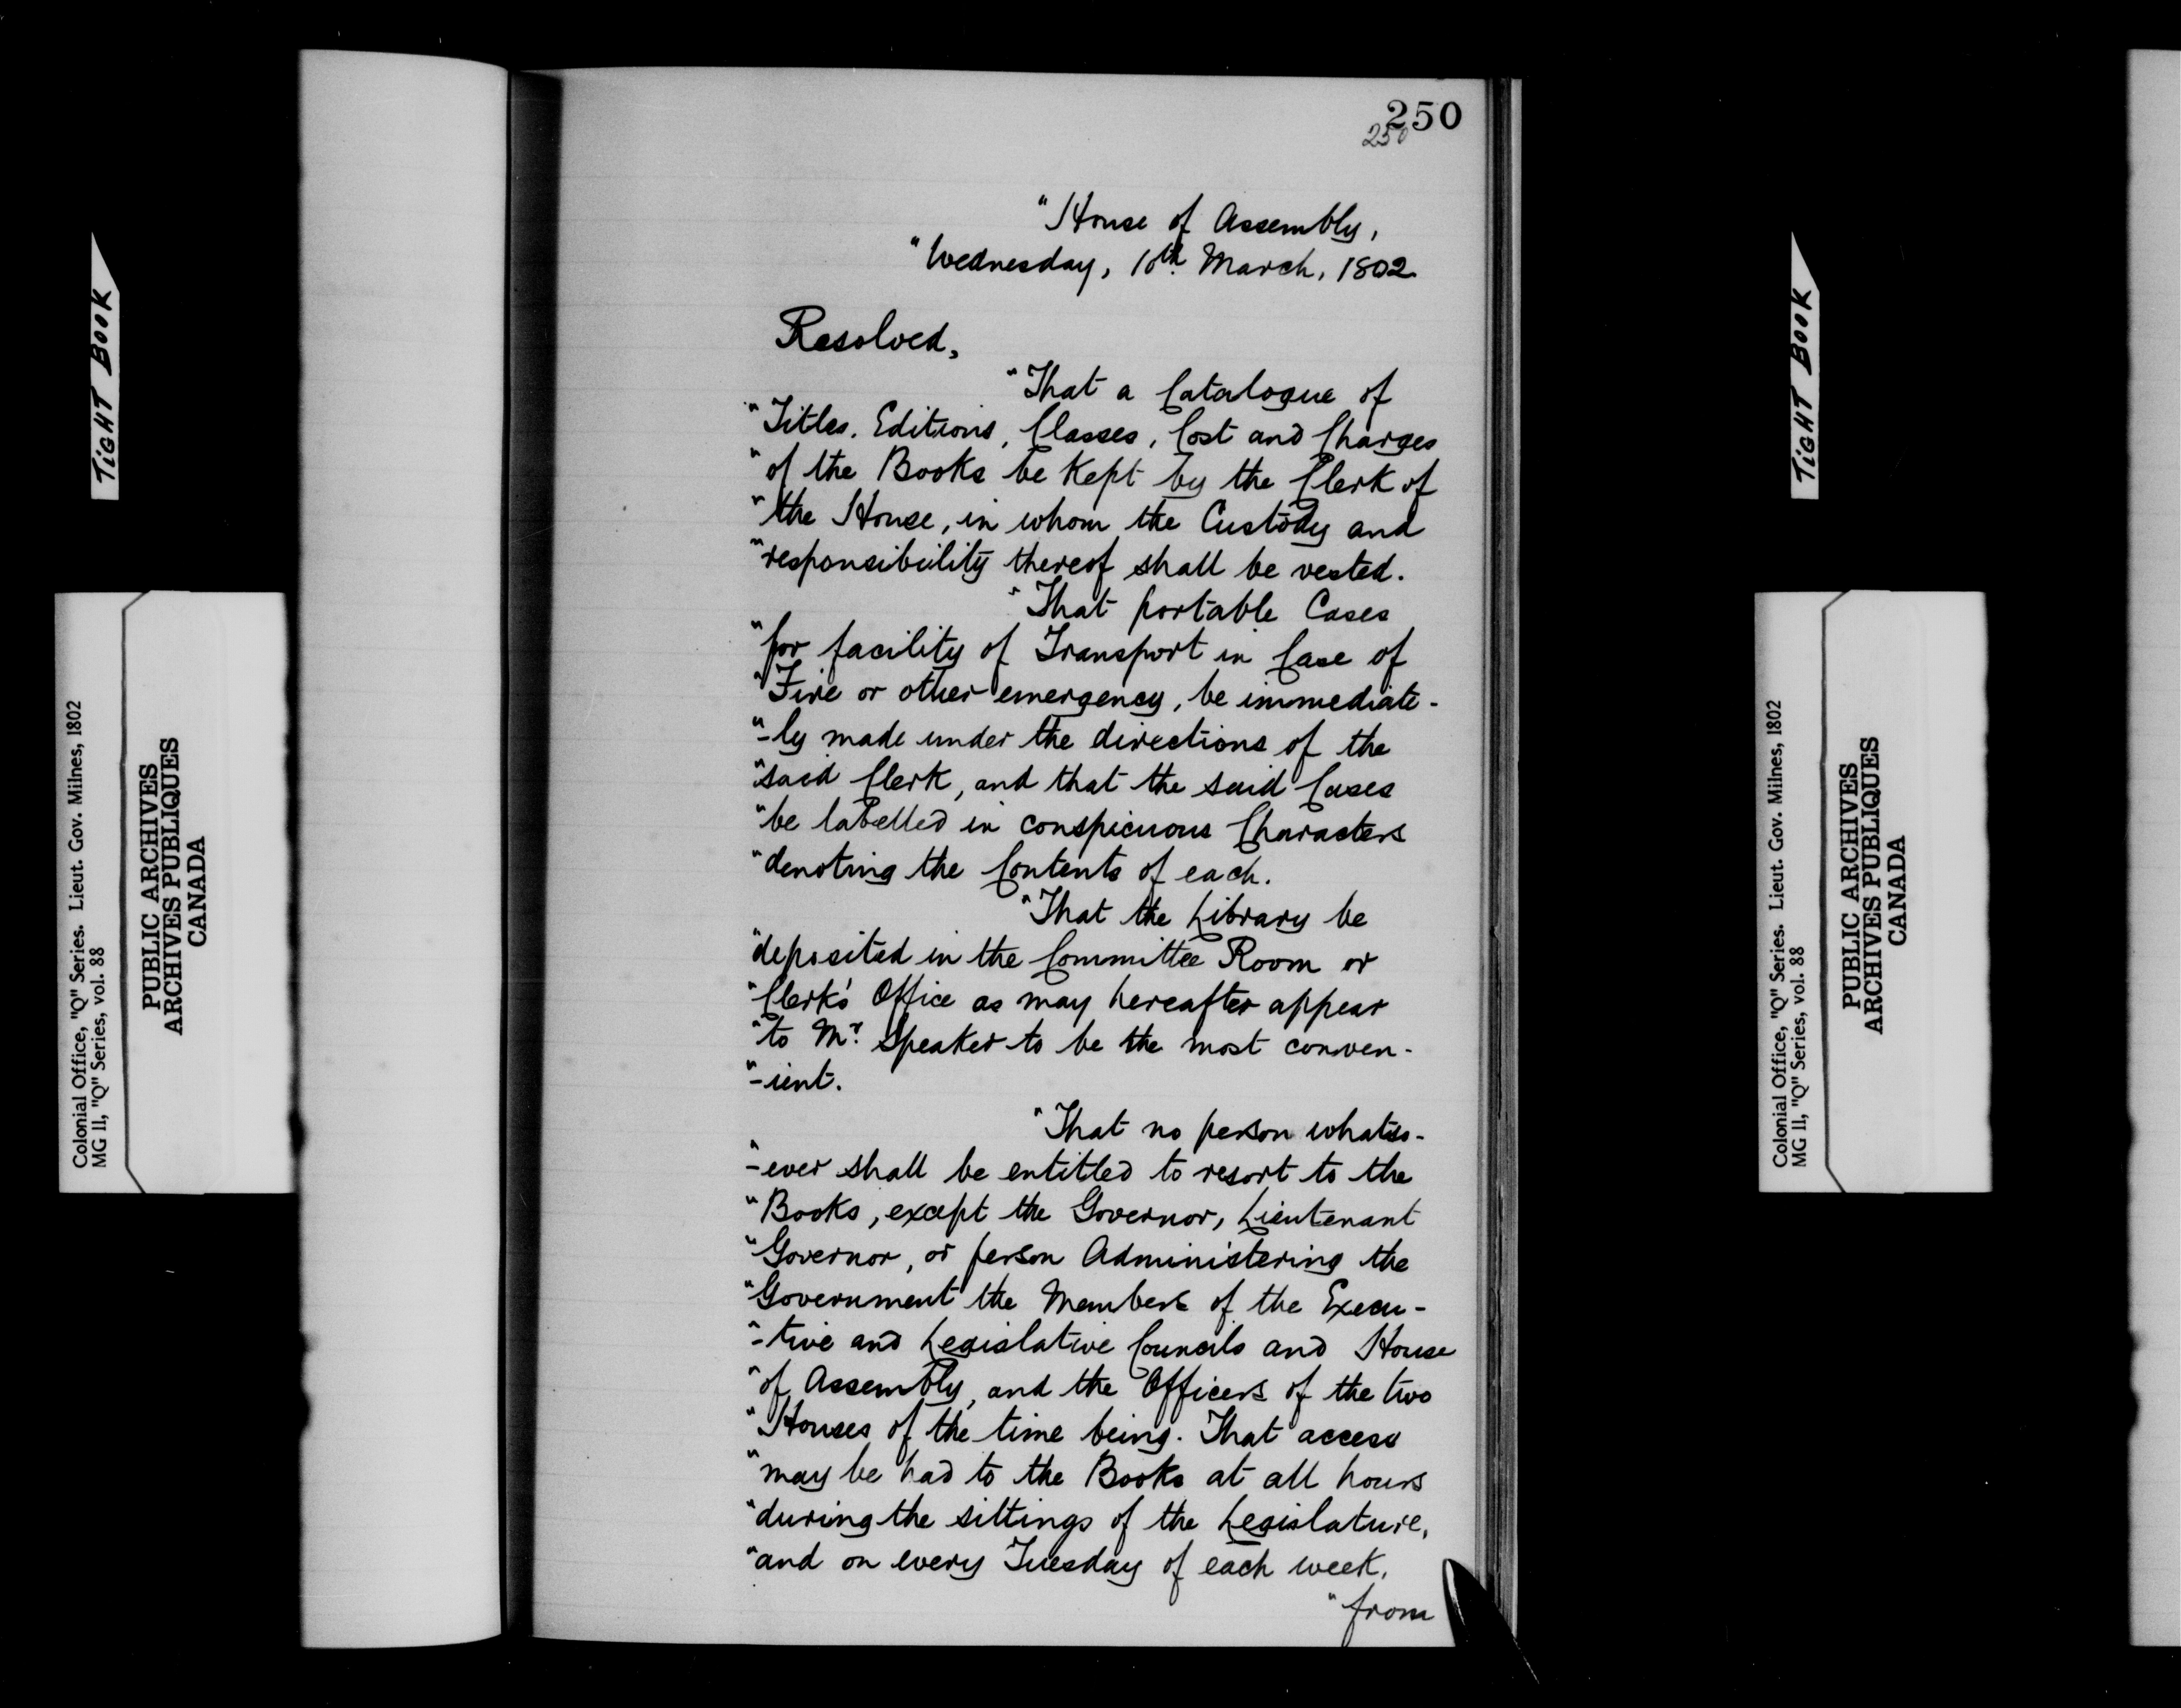 TIGHT BOOK
Colonial Office, "Q" Series. Lieut. Gov. Milnes, 1802
MG 11, "Q" Series, vol. 88
PUBLIC ARCHIVES
ARCHIVES PUBLIQUES
CANADA
250
250
"House of Assembly,
"Wednesday, 10th. March, 1802
Resolved,
"That a Catalogue of
"Titles, Editions, Classes, Cost and Charges
"of the Books be Kept by the Clerk of
"the House, in whom the Custody and
"responsibility thereof shall be vested.
"That portable Cases
"for facility of Transport in Case of
"Fire or other emergency, be immediate-
"-ly made under the directions of the
"said Clerk, and that the said Cases
"be labelled in conspicuous Characters
"denoting the Contents of each.
"That the Library be
"deposited in the Committee Room or
"Clerk's Office as may hereafter appear
"to Mr. Speaker to be the most conven-
"-ient.
"That no person whatso-
"-ever shall be entitled to resort to the
"Books, except the Governor, Lieutenant
"Governor, or person Administering the
"Government the Members of the Execu-
"-tive and Legislative Councils and House
"of Assembly, and the Officers of the two
"Houses of the time being. That access
"may be had to the Books at all hours
"during the sittings of the Legislature,
"and on every Tuesday of each week,
"from
TIGHT BOOK
Colonial Office, "Q" Series. Lieut. Gov. Milnes, 1802
MG 11, "Q" Series, vol. 88
PUBLIC ARCHIVES
ARCHIVES PUBLIQUES
CANADA